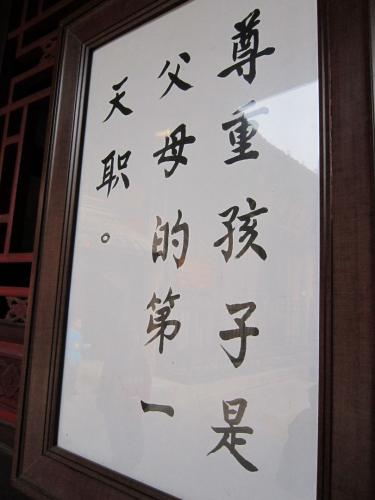 尊重孩子是
父母的第一
天职。